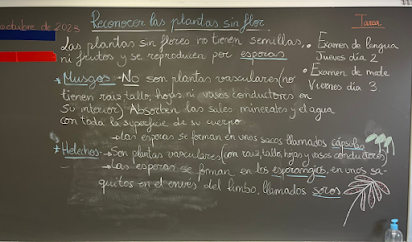 octubre de 2023
Reconocer las plantas sin flor.
Tarea
Las plantas sin flores no tienen semillas,
ni frutos y se reproducen por esporas
• Examen de lengua
Jueves día 2
• Examen de mate
Viernes día 3
* Musgos - No son plantas vasculares (no
tienen raíz, tallo, hojas ni vasos conductores en
su interior) Absorben las sales minerales y el agua
con toda la superficie de su cuerpo
→ Las esporas se forman en unos sacos llamados cápsulas
* Helechos → Son plantas vasculares (con raíz, tallo, hojas y vasos conductores)
→ Las esporas se forman en los esporangios, en unos sa-
quitos en el envés del limbo, llamados soros